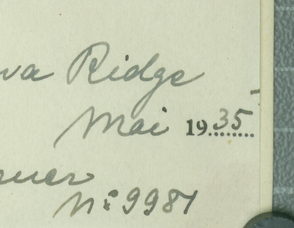 va Ridge
Mai 1935
ner
N: 9981